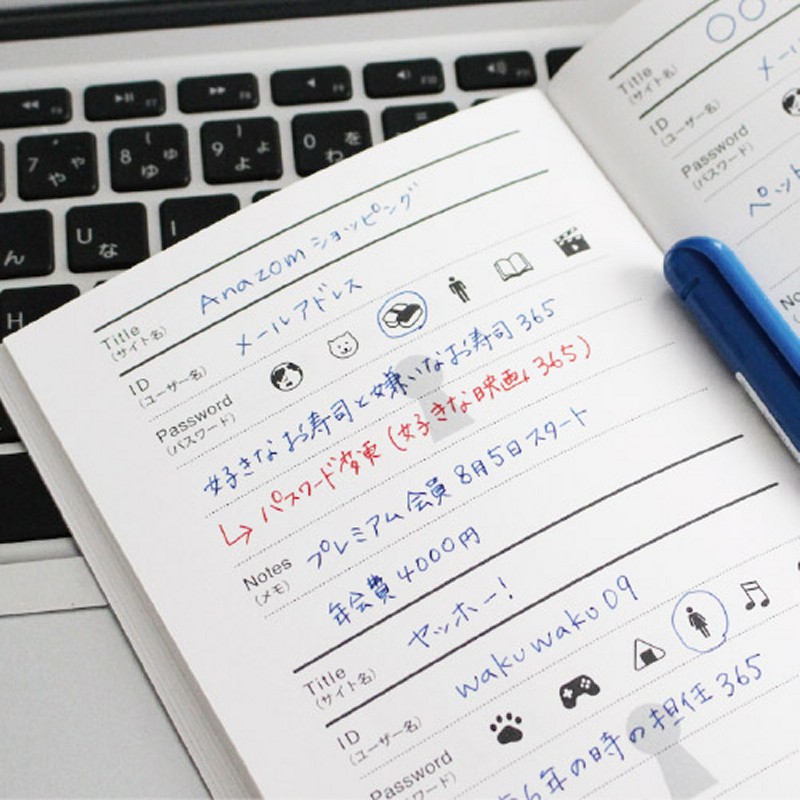 F6
F7
F8
F9
F10
7 や ゃ
8 ゆ ゅ
9 よ ょ
0 を わ
ん
U な
I
H
Title
(サイト名)
Anazom ショッピング
ID
(ユーザー名)
メールアドレス
Password
(パスワード)
好きなお寿司と嫌いなお寿司365
↳パスワード変更(好きな映画, 365)
Notes
(メモ)
プレミアム会員 8月5日スタート
年会費4000円
Title
(サイト名)
ヤッホー!
ID
(ユーザー名)
wakuwaku09
Password
(パスワード)
6年の時の担任365
Title
(サイト名)
○○
ID
(ユーザー名)
メー
Password
(パスワード)
ペット
No